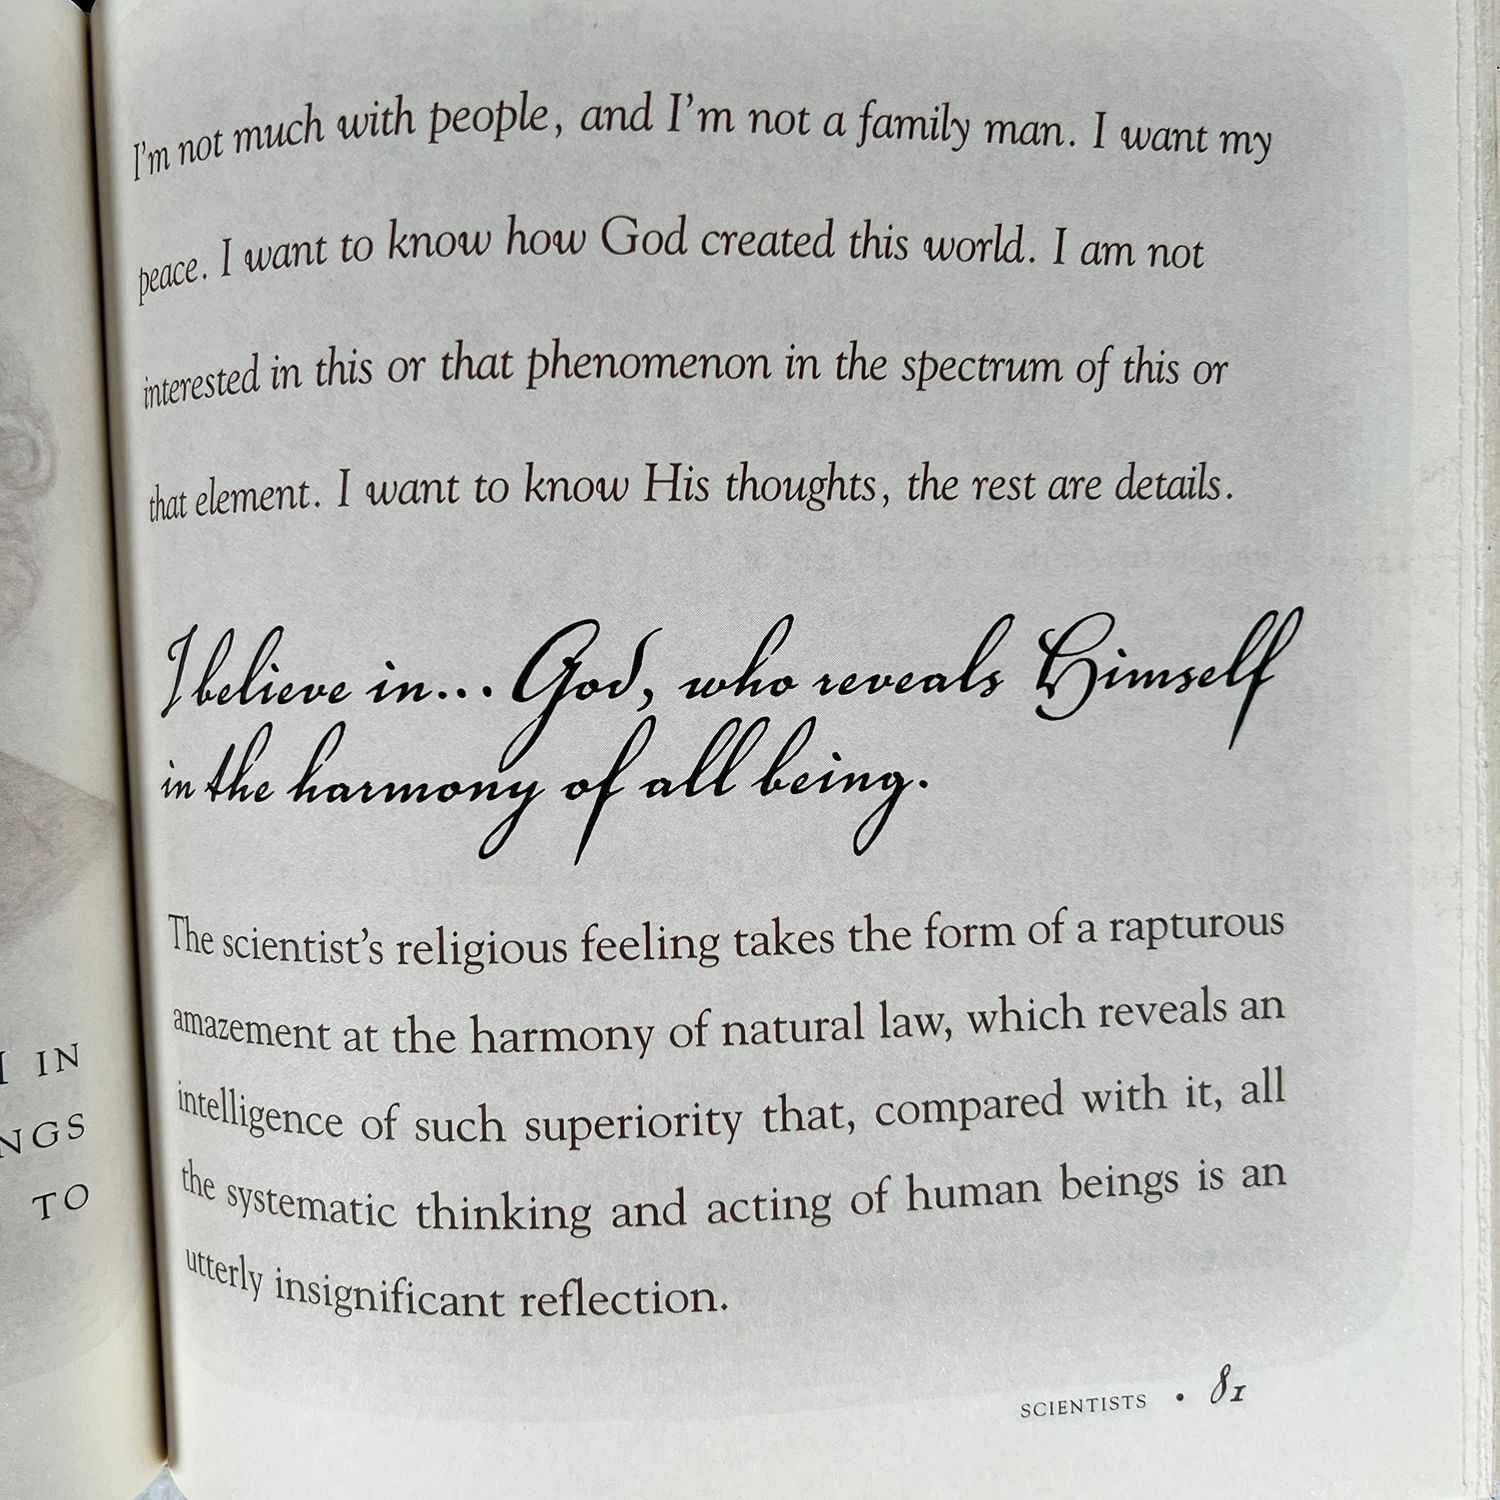 I'm not much with people, and I'm not a family man. I want my
peace. I want to know how God created this world. I am not
interested in this or that phenomenon in the spectrum of this or
that element. I want to know His thoughts, the rest are details.
I believe in... God, who reveals Himself
in the harmony of all being.
The scientist's religious feeling takes the form of a rapturous
amazement at the harmony of natural law, which reveals an
intelligence of such superiority that, compared with it, all
the systematic thinking and acting of human beings is an
utterly insignificant reflection.
SCIENTISTS • 81
IN
NGS
TO